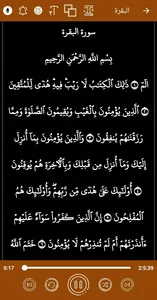 البقرة
سورة البقرة
بِسْمِ اللَّهِ الرَّحْمَٰنِ الرَّحِيمِ
الٓمٓ ۝ ذَٰلِكَ الْكِتَٰبُ لَا رَيْبَ فِيهِ هُدًى لِّلْمُتَّقِينَ
۝ الَّذِينَ يُؤْمِنُونَ بِالْغَيْبِ وَيُقِيمُونَ الصَّلَوٰةَ وَمِمَّا
رَزَقْنَٰهُمْ يُنفِقُونَ ۝ وَالَّذِينَ يُؤْمِنُونَ بِمَآ أُنزِلَ
إِلَيْكَ وَمَآ أُنزِلَ مِن قَبْلِكَ وَبِالْءَاخِرَةِ هُمْ يُوقِنُونَ
۝ أُو۟لَٰٓئِكَ عَلَىٰ هُدًى مِّن رَّبِّهِمْ وَأُو۟لَٰٓئِكَ هُمُ
الْمُفْلِحُونَ ۝ إِنَّ الَّذِينَ كَفَرُوا۟ سَوَآءٌ عَلَيْهِمْ
ءَأَنذَرْتَهُمْ أَمْ لَمْ تُنذِرْهُمْ لَا يُؤْمِنُونَ ۝ خَتَمَ اللَّهُ
0:17 2:5:39